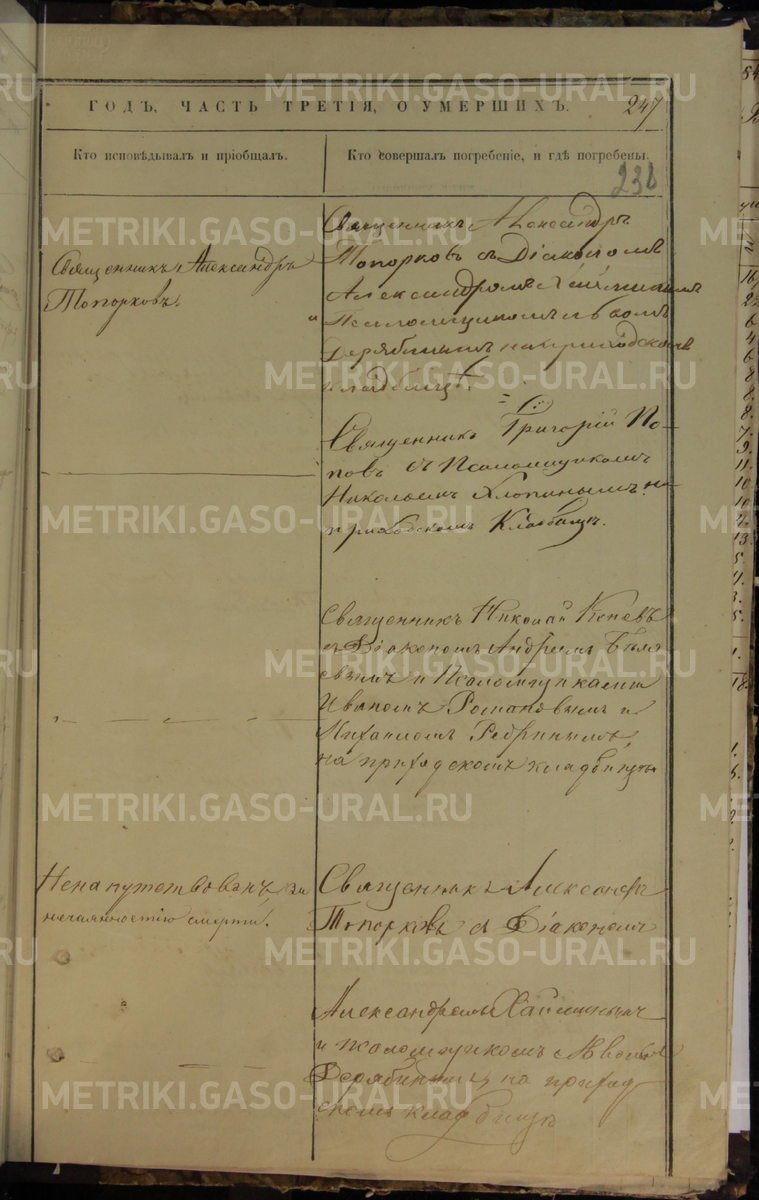 ГОДЪ, ЧАСТЬ ТРЕТІЯ, О УМЕРШИХЪ.
247
Кто исповѣдывалъ и пріобщалъ.
Кто совершалъ погребеніе, и гдѣ погребены.
238
Священникъ Александръ
Топорковъ.
Священникъ Александръ
Топорковъ съ Діакономъ
Александромъ
и
Псаломщикомъ Львомъ
Дерябинымъ на приходскомъ
кладбищѣ.
Священникъ Григорій По-
повъ съ Псаломщикомъ
Николаемъ Хлопинымъ на
приходскомъ Кладбищѣ.
Священникъ Николай Коневъ
съ Діакономъ Андреемъ
и Псаломщиками
Иваномъ Романовымъ и
Михаиломъ
на приходскомъ кладбищѣ
Ненапутствованъ, за
нечаянностію смерти.
Священникъ Александръ
Топорковъ съ Діакономъ
Александромъ
и псаломщикомъ Львомъ
Дерябинымъ на приход
скомъ кладбищѣ
METRIKI.GASO-URAL.RU